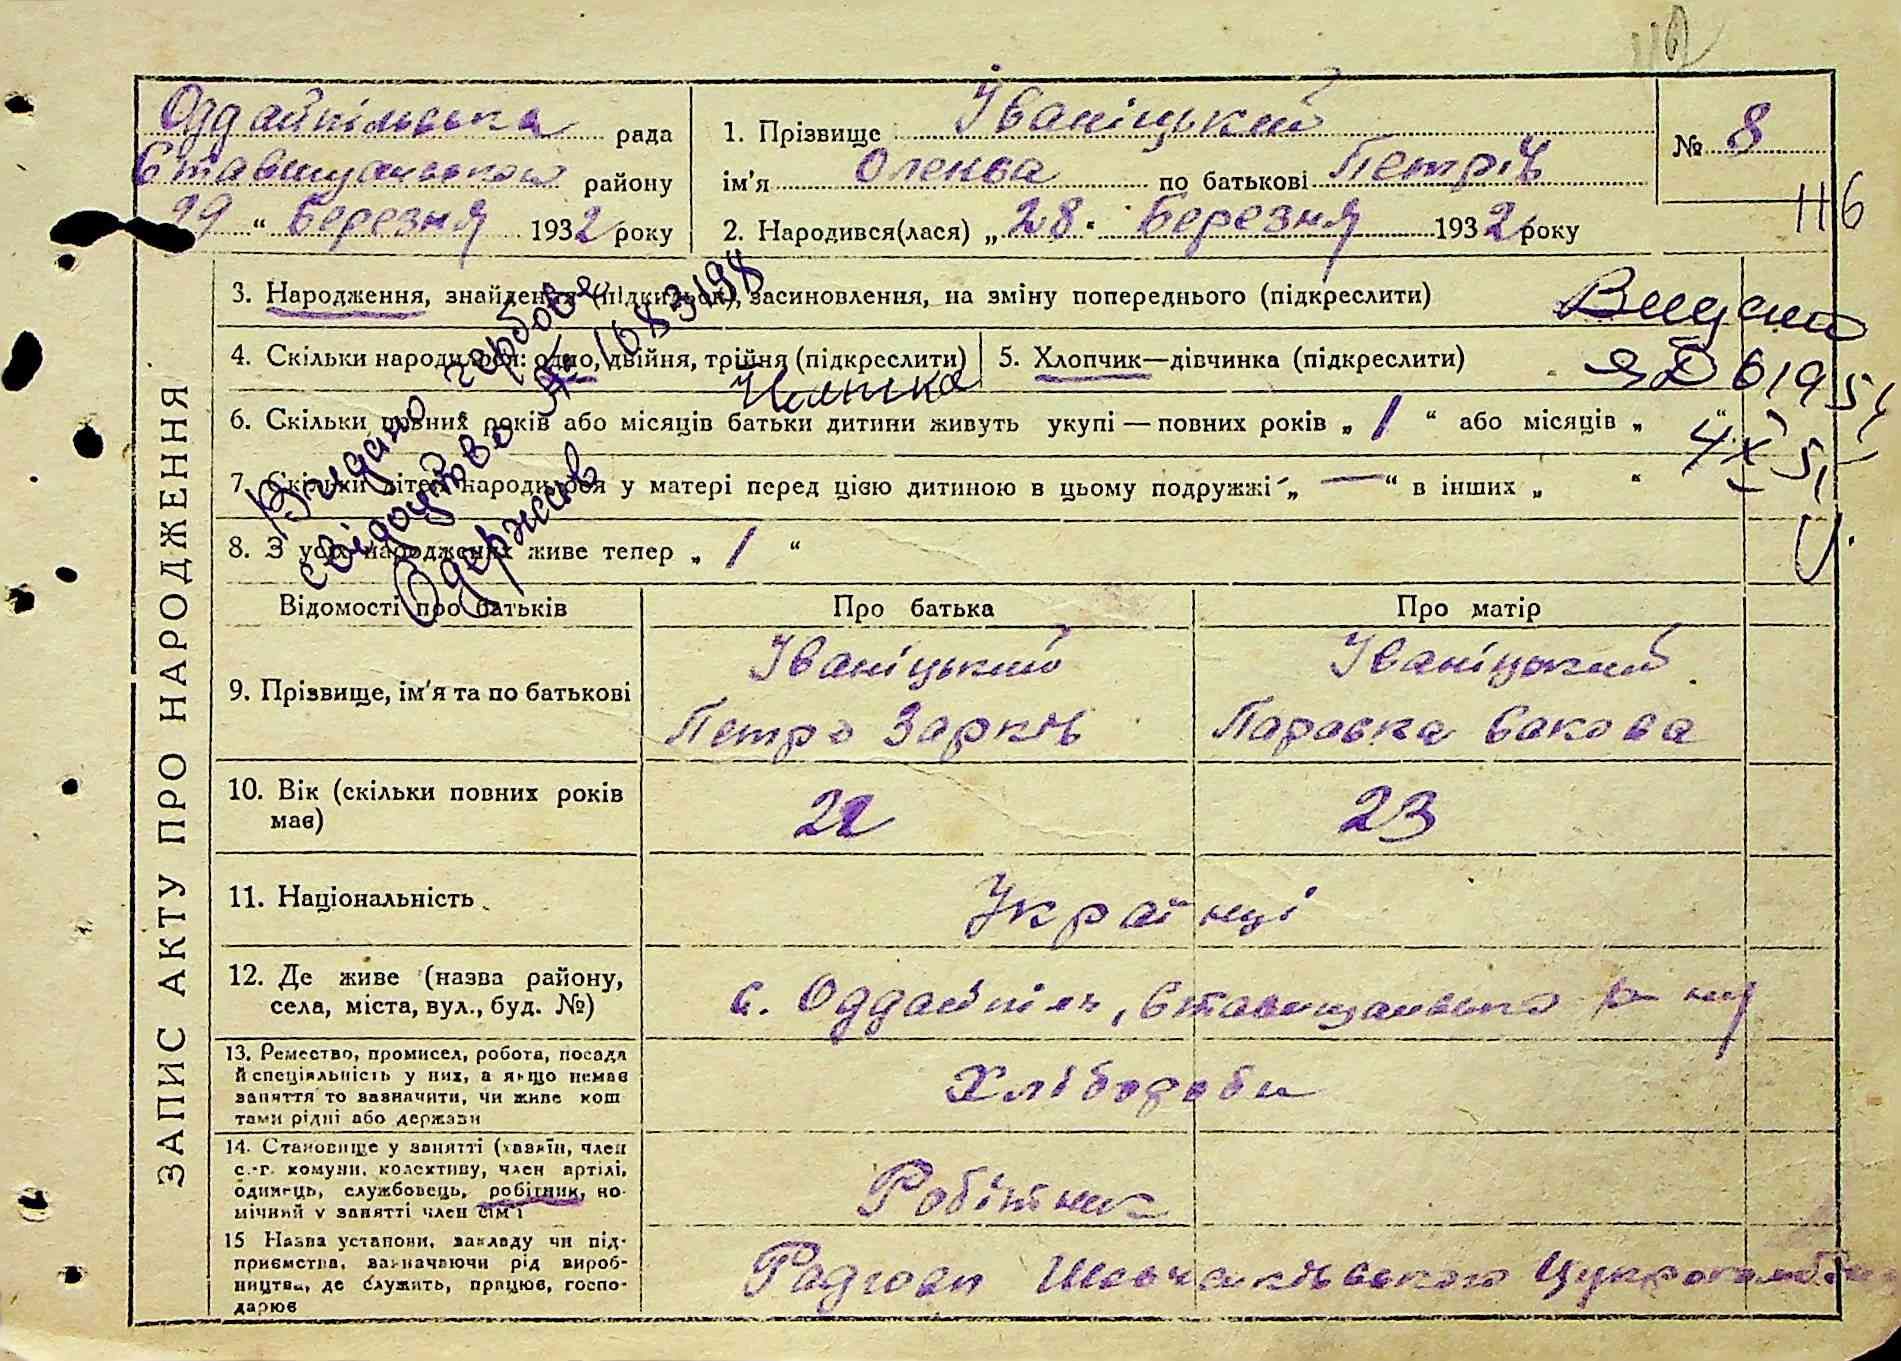 Оддайпільська рада
Ставищанського району
29 " Березня 1932 року
1. Прізвище Іваніцький
ім'я Олекса по батькові Петрів
2. Народився(лася) „28" Березня 1932 року
№ 8
116
3. Народження, знайдення (підкидьок), засиновлення, на зміну попереднього (підкреслити)
4. Скільки народилося: одно, двійня, трійня (підкреслити)
5. Хлопчик—дівчинка (підкреслити)
6. Скільки повних років або місяців батьки дитини живуть укупі — повних років „ 1 " або місяців „ "
7. Скільки дітей народилося у матері перед цією дитиною в цьому подружжі „ — " в інших „ "
8. З усіх народжених живе тепер „ 1 "
Видано гербове
свідоцтво № 1683198
Одержав
ЯЮ 61954
4 X 51
ЗАПИС АКТУ ПРО НАРОДЖЕННЯ
Відомості про батьків
Про батька
Про матір
9. Прізвище, ім'я та по батькові
Іваніцький
Петро Зарків
Іваніцький
Параска
10. Вік (скільки повних років
має)
22
23
11. Національність
Українці
12. Де живе (назва району,
села, міста, вул., буд. №)
с. Оддайпіль, Ставищанського р-ну
13. Ремество, промисел, робота, посада
й спеціяльність у них, а якщо немає
заняття то зазначити, чи живе кош
тами рідні або держави
Хлібороби
14. Становище у занятті (хазяїн, член
с.-г. комуни, колективу, член артілі,
одинець, службовець, робітник, по-
мічний у занятті член сім'ї
Робітник
15 Назва установи, закладу чи під-
приємства, зазначаючи рід вироб-
ництва, де служить, працює, госпо-
дарює
Радгосп